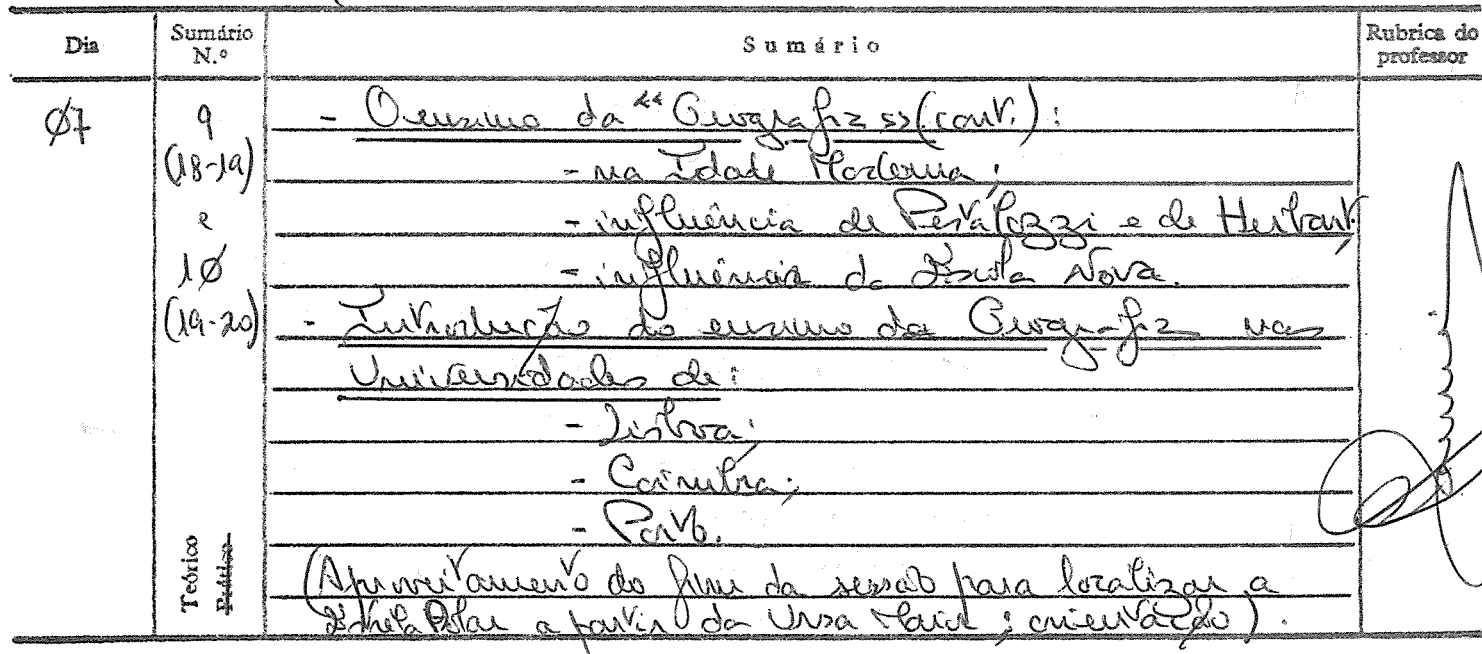 Dia Sumário N.º Sumário Rubrica do professor
07 9 - O ensino da "Geografia" (cont.):
(18-19) - na Idade Moderna;
e - influência de Pestalozzi e de Herbart;
10 - influência da Escola Nova.
(19-20) - Introdução do ensino da Geografia nas
Universidades de:
- Lisboa;
- Coimbra;
- Porto.
Teórico
Prático
(Aproveitamento do fim da sessão para localizar a
Estrela Polar a partir da Ursa Maior; orientação).